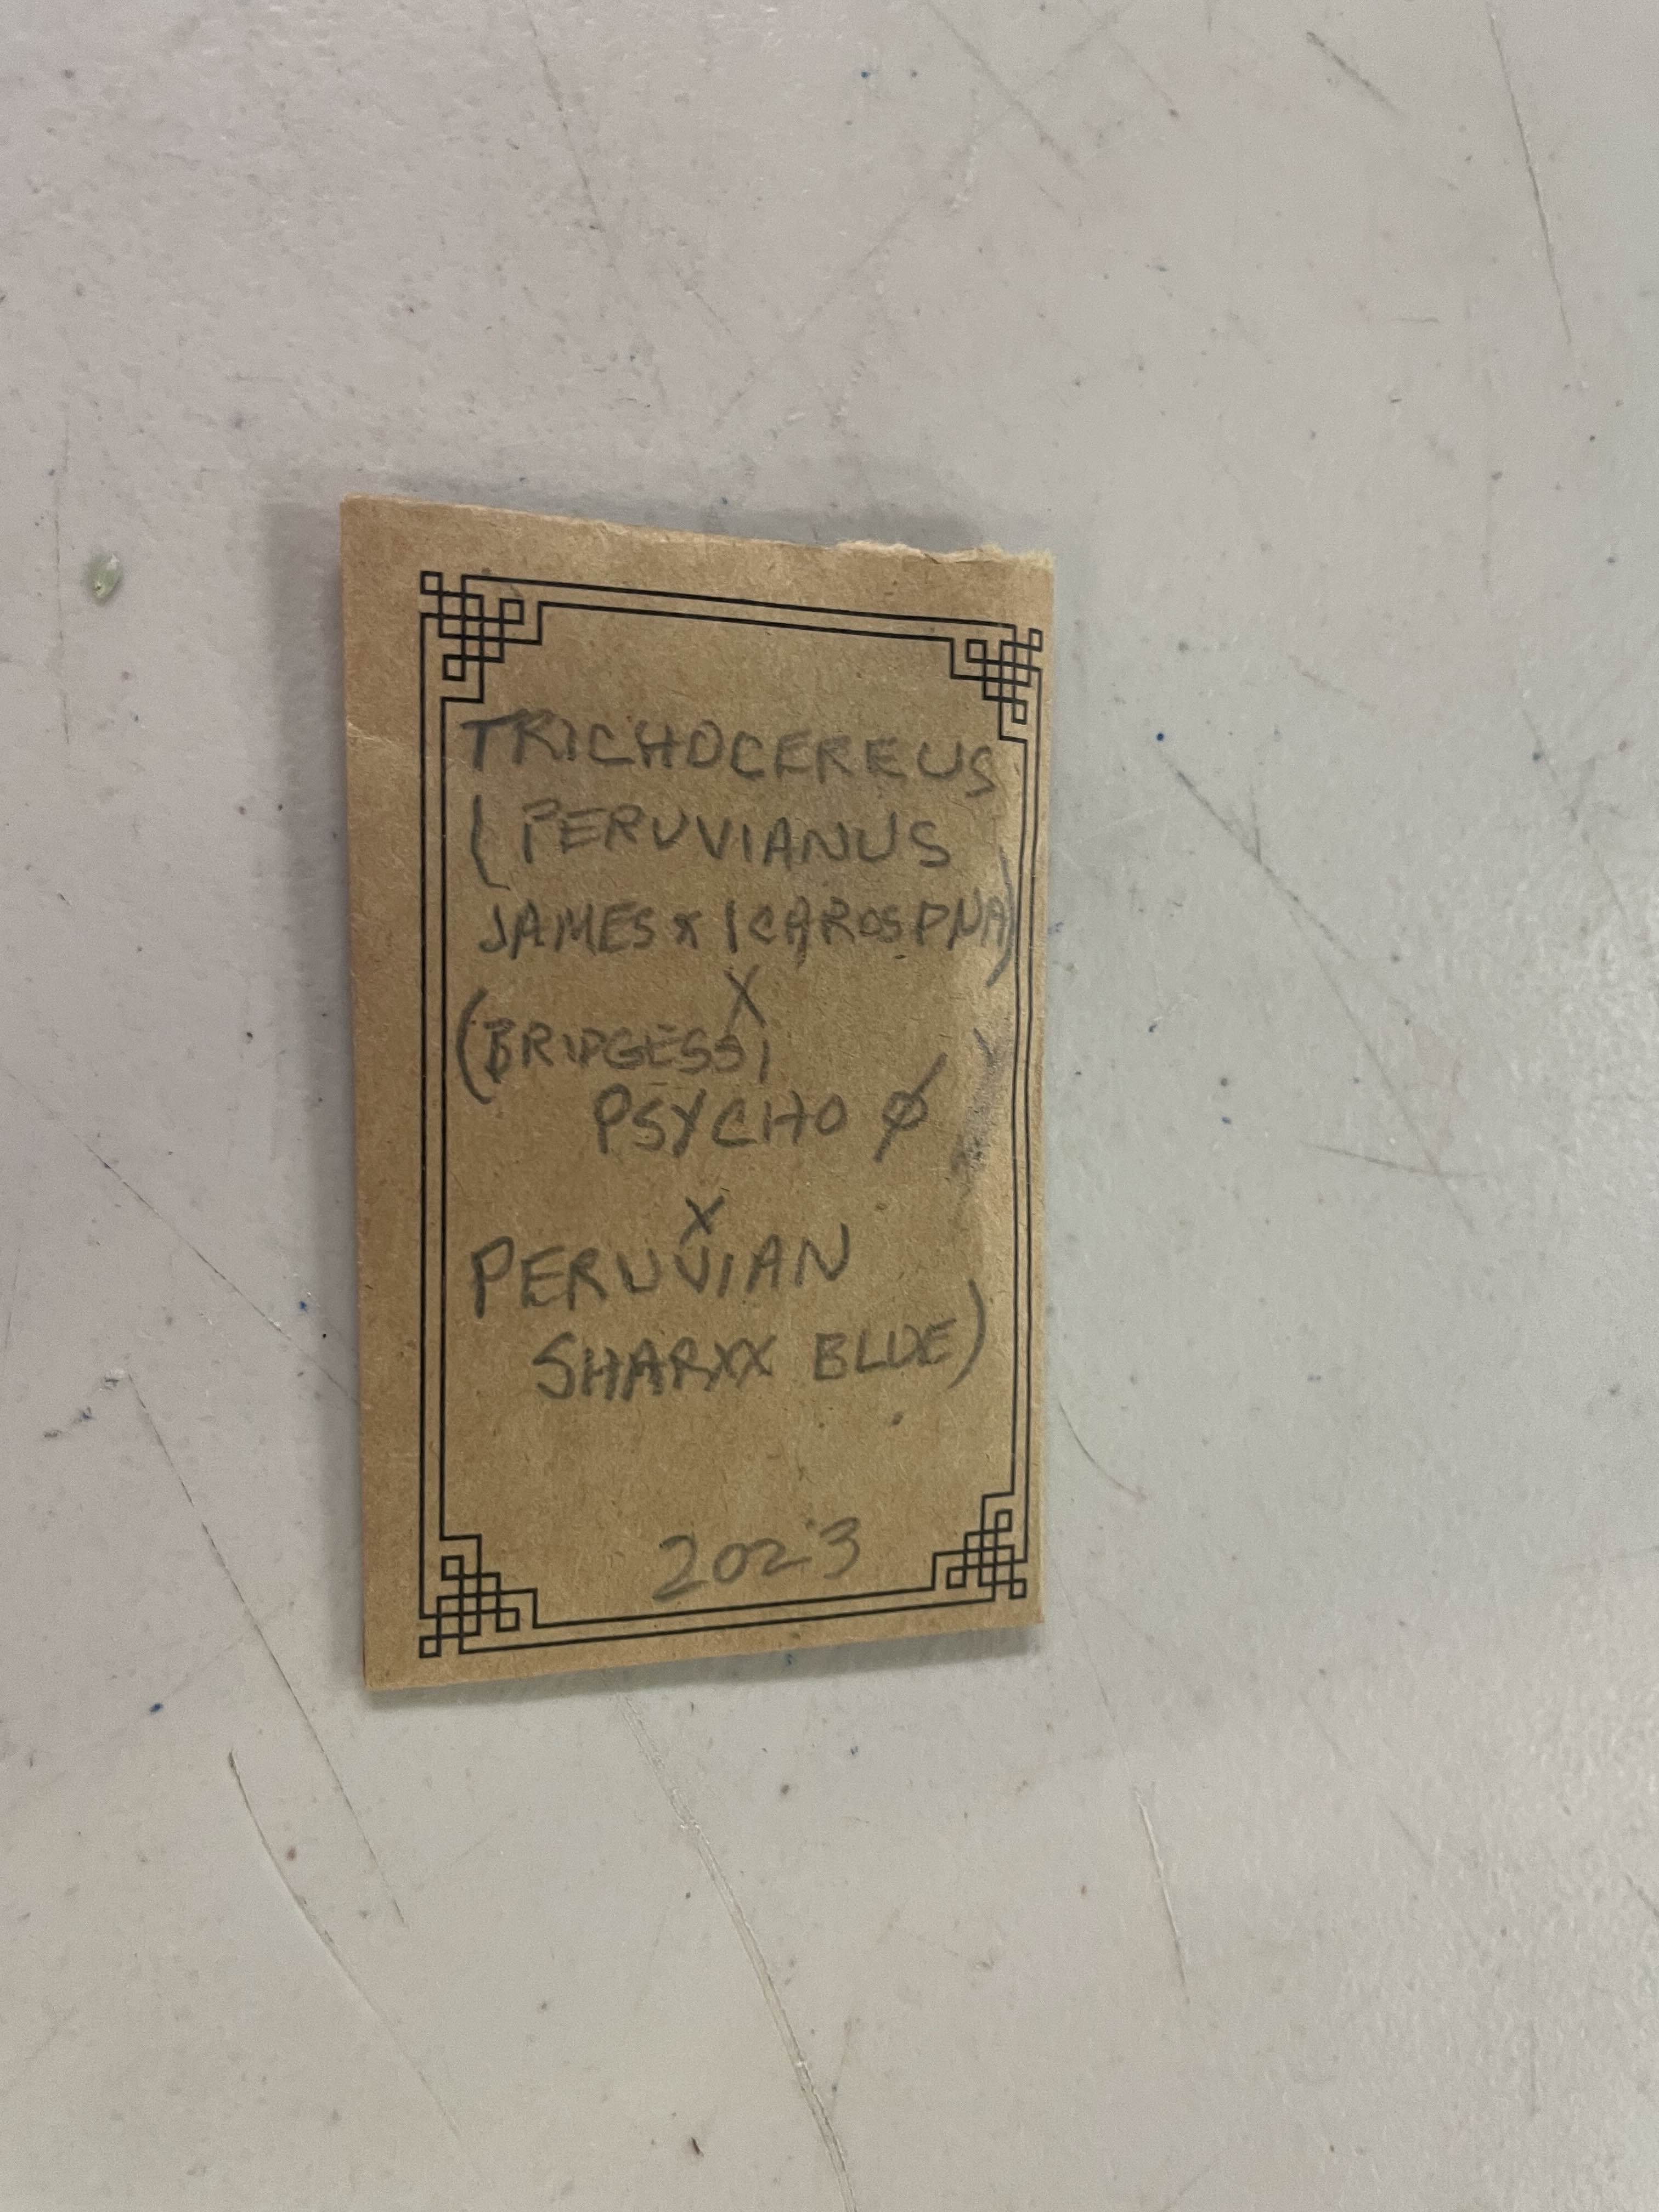 TRICHOCEREUS
(PERUVIANUS
JAMES x ICAROSDNA)
X
(BRIDGESSI
PSYCHO Ø
X
PERUVIAN
SHARXX BLUE)
2023